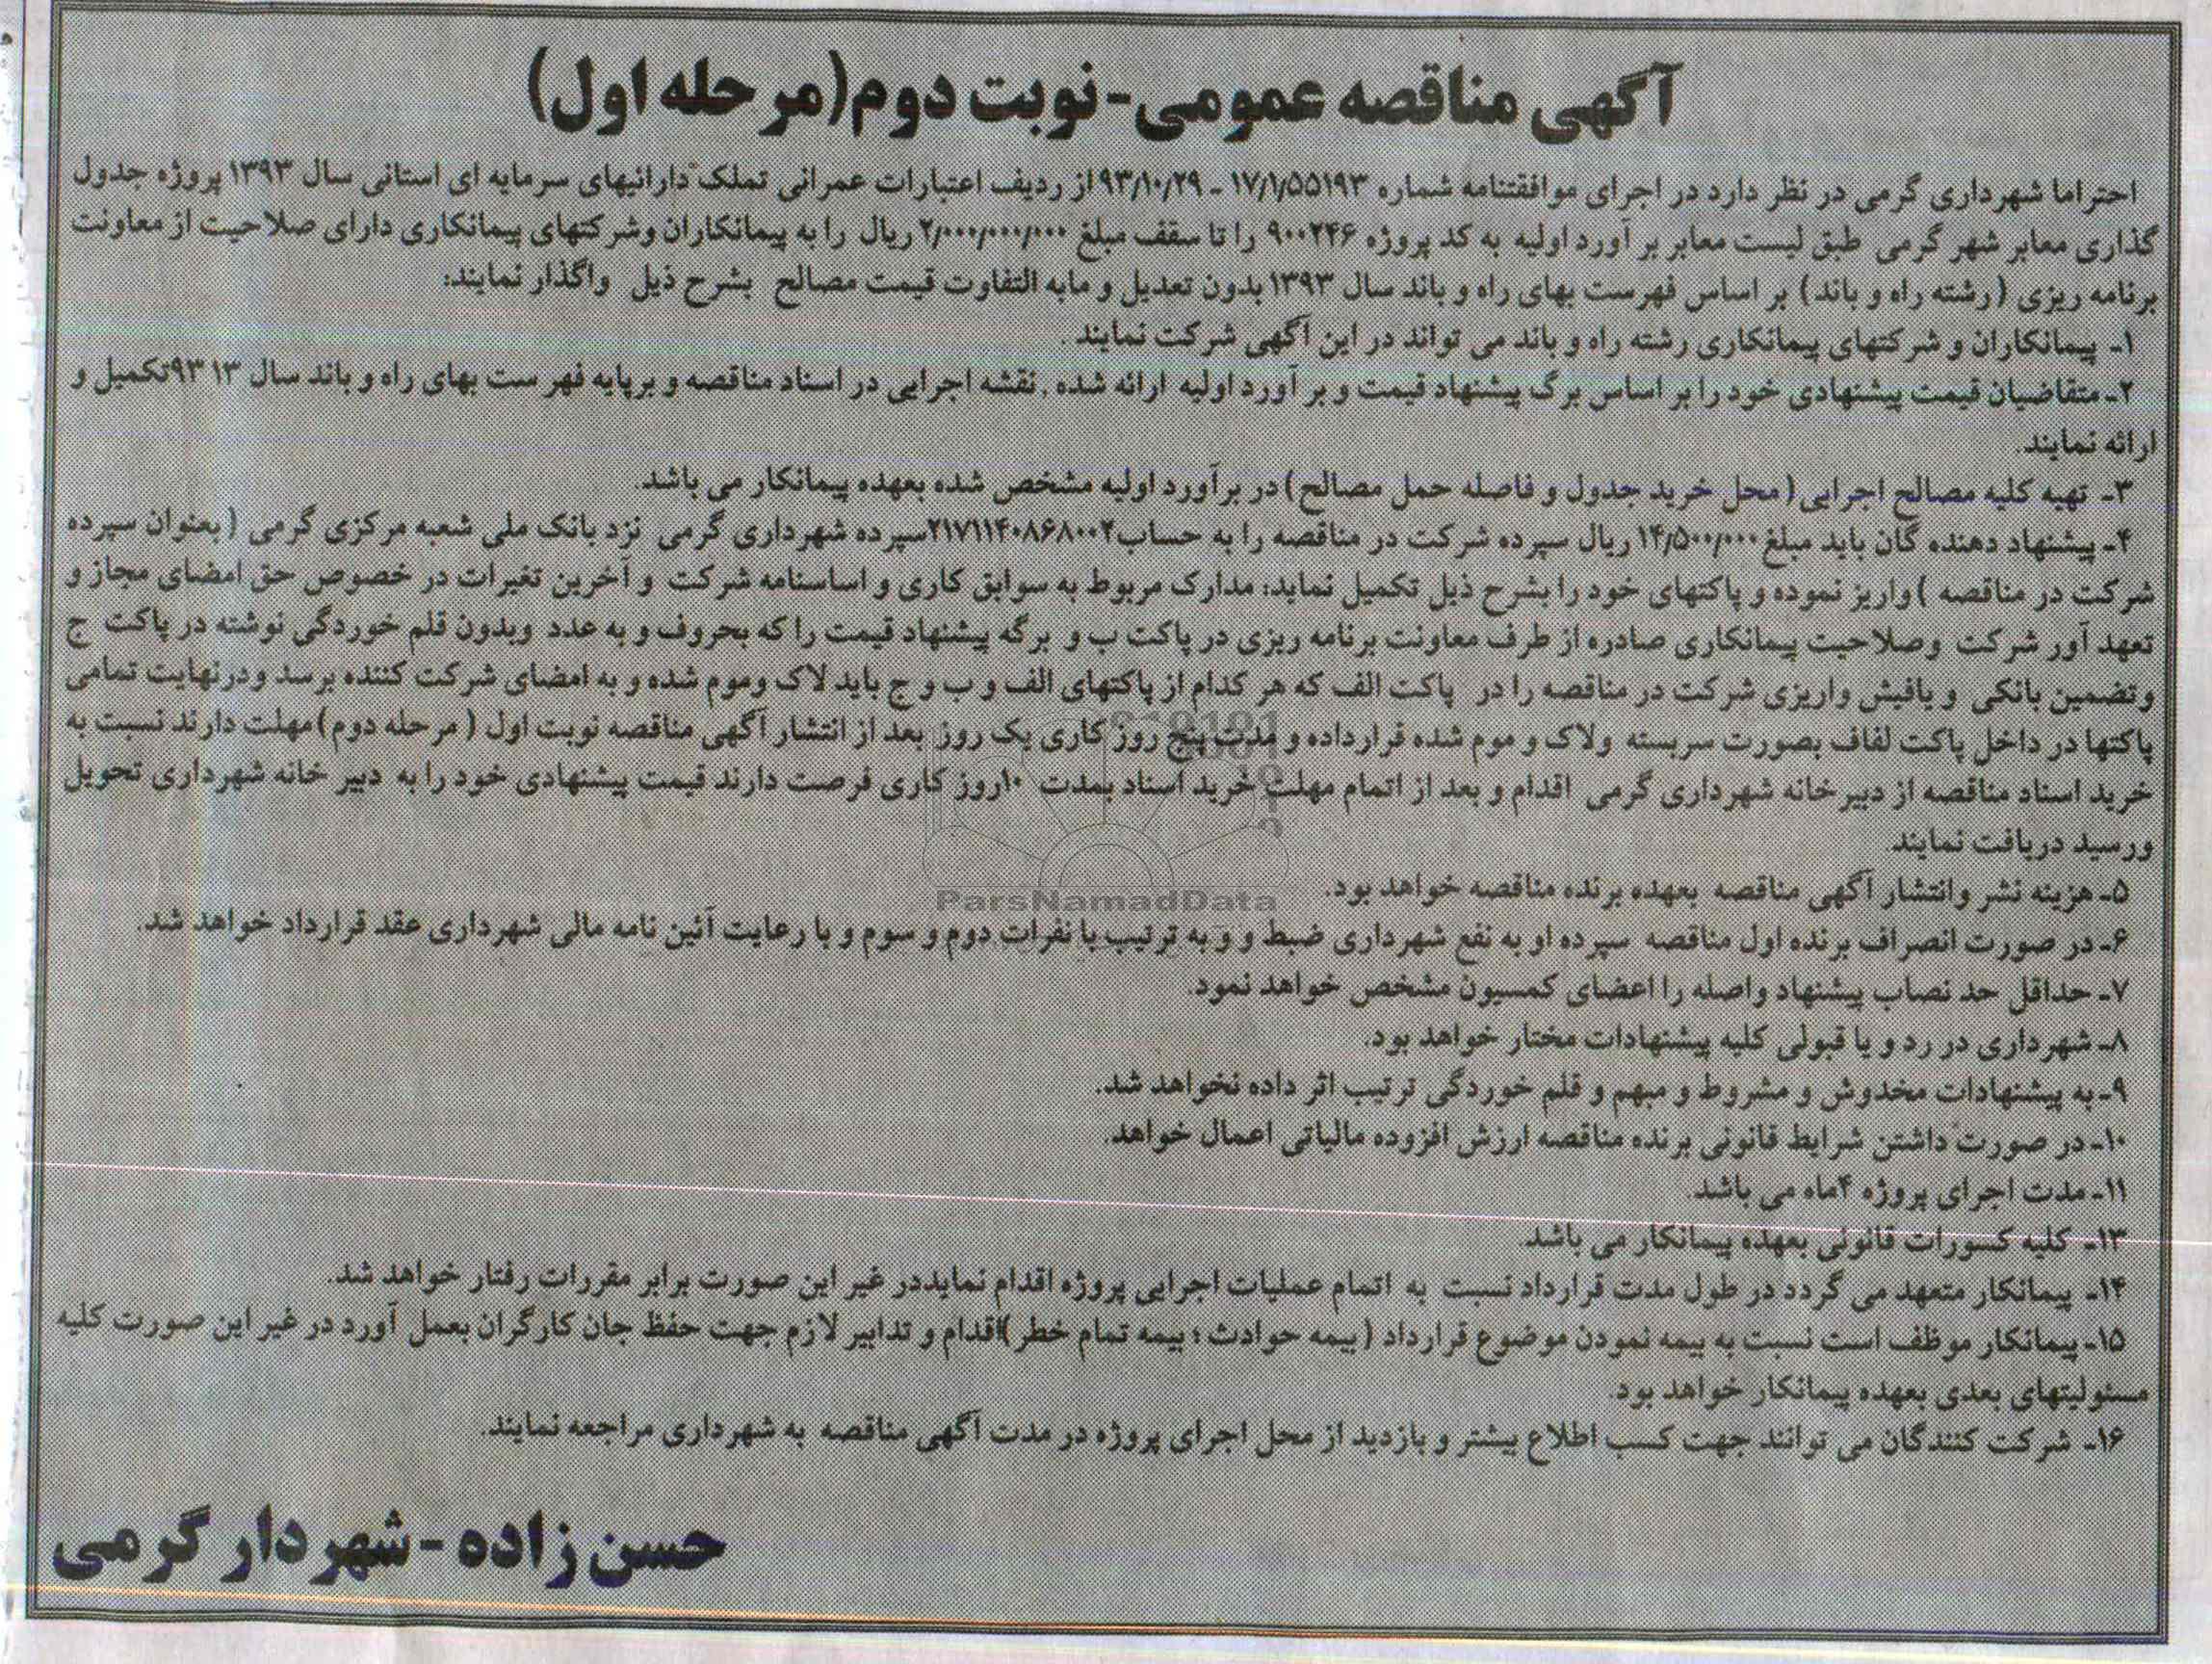 آگهی مناقصه عمومی-نوبت دوم(مرحله اول)
احتراما شهرداری گرمی در نظر دارد در اجرای موافقتنامه شماره ۱۷/۱/۵۵۱۹۳ - ۹۳/۱۰/۲۹ از ردیف اعتبارات عمرانی تملک دارائیهای سرمایه ای استانی سال ۱۳۹۳ پروژه جدول
گذاری معابر شهر گرمی طبق لیست معابر بر آورد اولیه به کد پروژه ۹۰۰۲۴۶ را تا سقف مبلغ ۲/۰۰۰/۰۰۰/۰۰۰ ریال را به پیمانکاران وشرکتهای پیمانکاری دارای صلاحیت از معاونت
برنامه ریزی (رشته راه و باند) بر اساس فهرست بهای راه و باند سال ۱۳۹۳ بدون تعدیل و مابه التفاوت قیمت مصالح بشرح ذیل واگذار نمایند:
۱- پیمانکاران و شرکتهای پیمانکاری رشته راه و باند می تواند در این آگهی شرکت نمایند .
۲- متقاضیان قیمت پیشنهادی خود را بر اساس برگ پیشنهاد قیمت و بر آورد اولیه ارائه شده , نقشه اجرایی در اسناد مناقصه و برپایه فهرست بهای راه و باند سال ۱۳ ۹۳تکمیل و
ارائه نمایند.
۳- تهیه کلیه مصالح اجرایی(محل خرید جدول و فاصله حمل مصالح)در برآورد اولیه مشخص شده بعهده پیمانکار می باشد.
۴- پیشنهاد دهنده گان باید مبلغ ۱۴/۵۰۰/۰۰۰ ریال سپرده شرکت در مناقصه را به حساب۲۱۷۱۱۴۰۸۶۸۰۰۲سپرده شهرداری گرمی نزد بانک ملی شعبه مرکزی گرمی (بعنوان سپرده
شرکت در مناقصه )واریز نموده و پاکتهای خود را بشرح ذیل تکمیل نماید: مدارک مربوط به سوابق کاری و اساسنامه شرکت و آخرین تغیرات در خصوص حق امضای مجاز و
تعهد آور شرکت وصلاحیت پیمانکاری صادره از طرف معاونت برنامه ریزی در پاکت ب و برگه پیشنهاد قیمت را که بحروف و به عدد وبدون قلم خوردگی نوشته در پاکت ج
وتضمین بانکی و یافیش واریزی شرکت در مناقصه را در پاکت الف که هر کدام از پاکتهای الف و ب و ج باید لاک وموم شده و به امضای شرکت کننده برسد ودرنهایت تمامی
پاکتها در داخل پاکت لفاف بصورت سربسته ولاک و موم شده قرارداده و مدت پنج روز کاری یک روز بعد از انتشار آگهی مناقصه نوبت اول (مرحله دوم)مهلت دارند نسبت به
خرید اسناد مناقصه از دبیرخانه شهرداری گرمی اقدام و بعد از اتمام مهلت خرید اسناد بمدت ۱۰روز کاری فرصت دارند قیمت پیشنهادی خود را به دبیر خانه شهرداری تحویل
ورسید دریافت نمایند.
ParsNamadData
۵- هزینه نشر وانتشار آگهی مناقصه بعهده برنده مناقصه خواهد بود.
۶- در صورت انصراف برنده اول مناقصه سپرده او به نفع شهرداری ضبط و و به ترتیب با نفرات دوم و سوم و با رعایت آئین نامه مالی شهرداری عقد قرارداد خواهد شد.
۷- حداقل حد نصاب پیشنهاد واصله را اعضای کمسیون مشخص خواهد نمود.
۸- شهرداری در رد و یا قبولی کلیه پیشنهادات مختار خواهد بود.
۹- به پیشنهادات مخدوش و مشروط و مبهم و قلم خوردگی ترتیب اثر داده نخواهد شد.
۱۰- در صورت داشتن شرایط قانونی برنده مناقصه ارزش افزوده مالیاتی اعمال خواهد.
۱۱- مدت اجرای پروژه ۴ماه می باشد.
۱۳- کلیه کسورات قانونی بعهده پیمانکار می باشد.
۱۴- پیمانکار متعهد می گردد در طول مدت قرارداد نسبت به اتمام عملیات اجرایی پروژه اقدام نمایددر غیر این صورت برابر مقررات رفتار خواهد شد.
۱۵- پیمانکار موظف است نسبت به بیمه نمودن موضوع قرارداد (بیمه حوادث ؛ بیمه تمام خطر)اقدام و تدابیر لازم جهت حفظ جان کارگران بعمل آورد در غیر این صورت کلیه
مسئولیتهای بعدی بعهده پیمانکار خواهد بود.
۱۶- شرکت کنندگان می توانند جهت کسب اطلاع بیشتر و بازدید از محل اجرای پروژه در مدت آگهی مناقصه به شهرداری مراجعه نمایند.
حسن زاده - شهردار گرمی